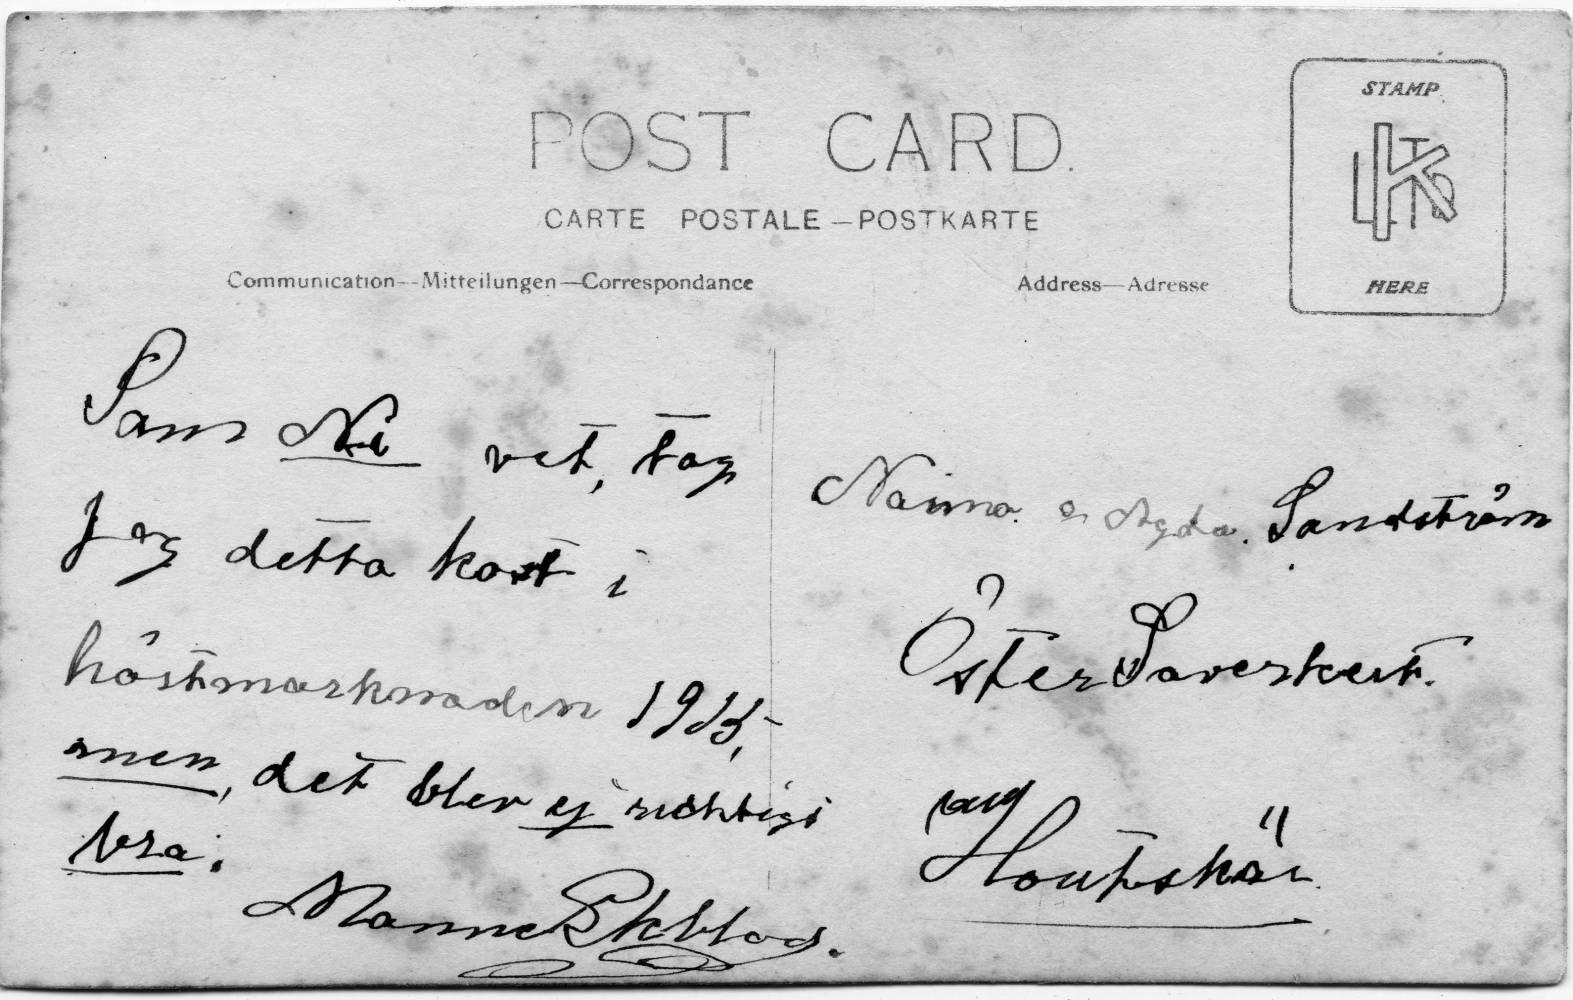 POST CARD.
CARTE POSTALE—POSTKARTE
Communication—Mitteilungen—Correspondance
Address—Adresse
STAMP
HERE
Som Ni vet, tog
jag detta kort i
höstmarknaden 1915,
men, det blev ej richtigt
bra.
Manne Ekblad.
Naima & Agda. Sandström
Öster
Houtskär